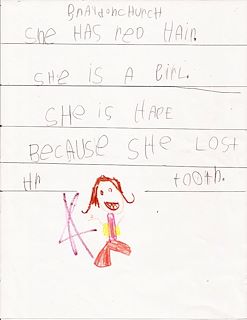 She HAS red HAir.
SHe is A Girl.
SHe is HAPE
BecAUSe SHe LOST
Hr tooth.